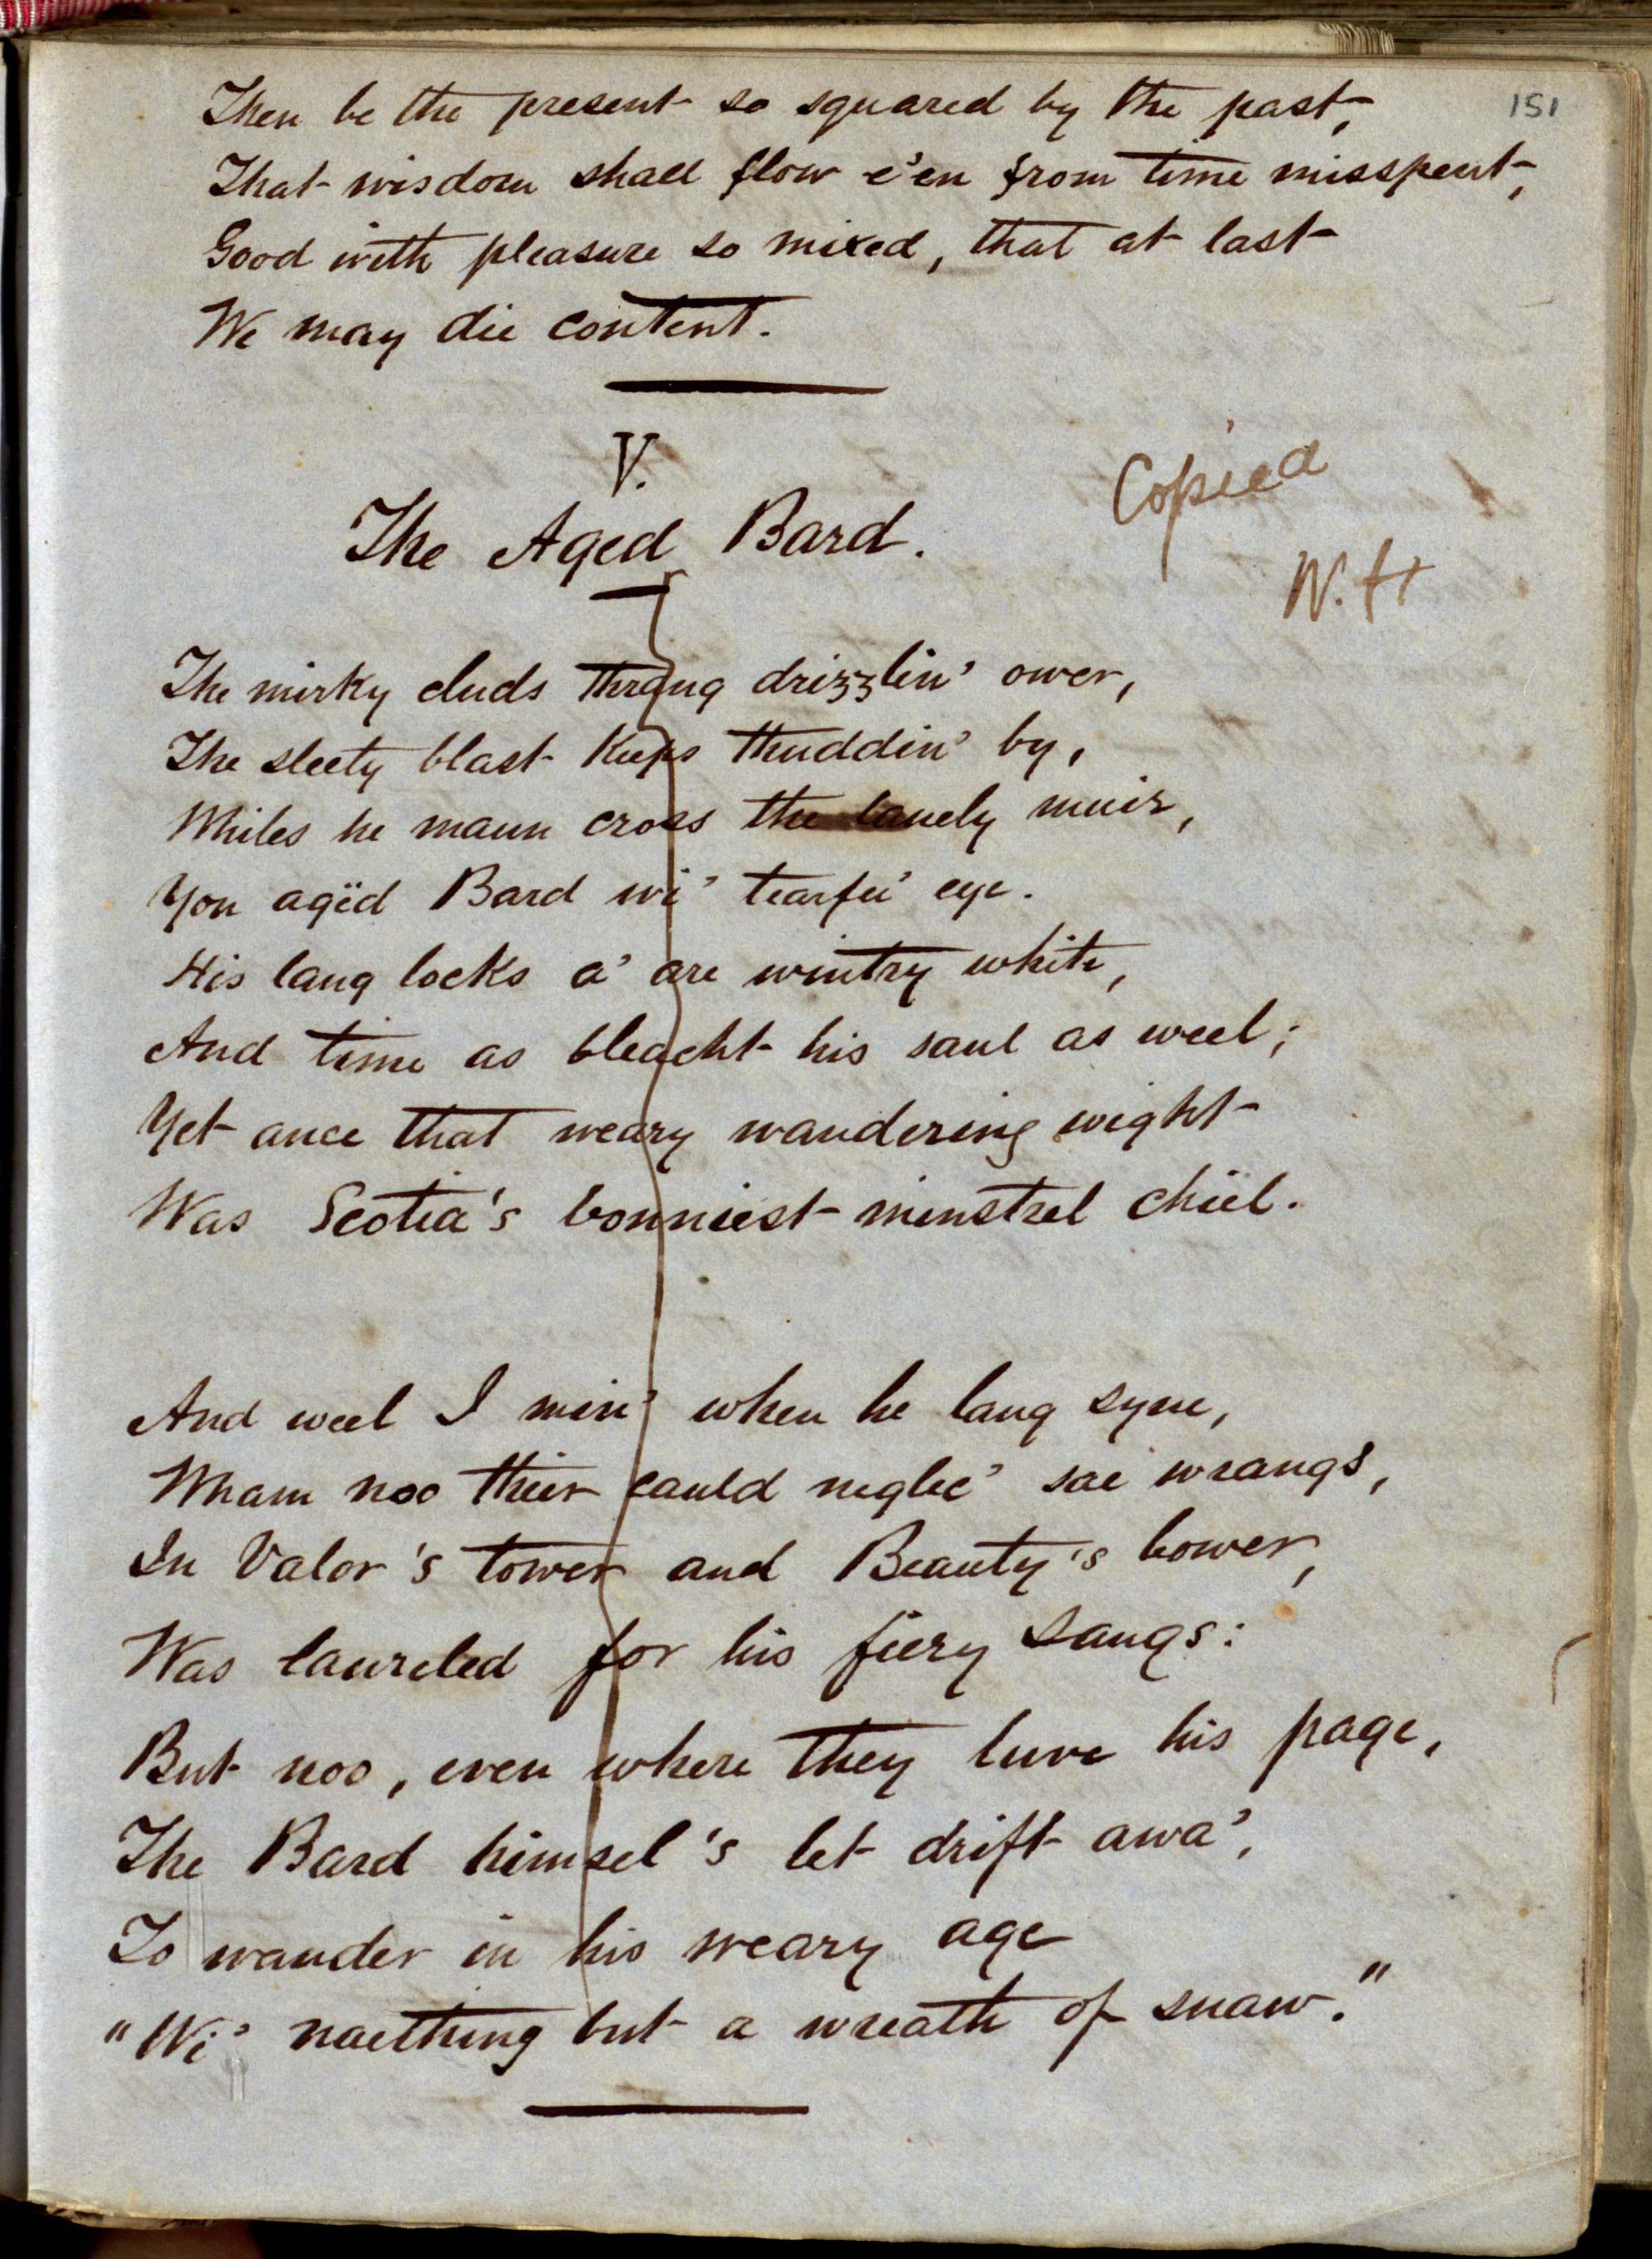 151
Then be the present so squared by the past,
That wisdom shall flow e'en from time misspent,
Good with pleasure so mixed, that at last
We may die content.
V.
The Aged Bard.
Copied
W. H
The mirky cluds thrang drizzlin' ower,
The sleety blast keeps thuddin' by,
Whiles he maun cross the lanely muir,
Yon agëd Bard wi' tearfu' eye.
His lang locks a' are wintry white,
And time as bleacht his saul as weel;
Yet ance that weary wandering wight
Was Scotia's bonniest minstrel chiel.
And weel I min' when he lang syne,
Wham noo their cauld neglec' sae wrangs,
In Valor's tower and Beauty's bower,
Was laureled for his fiery sangs:
But noo, even where they luve his page,
The Bard himsel's let drift awa',
To wander in his weary age
"Wi' naething but a wreath of snaw."